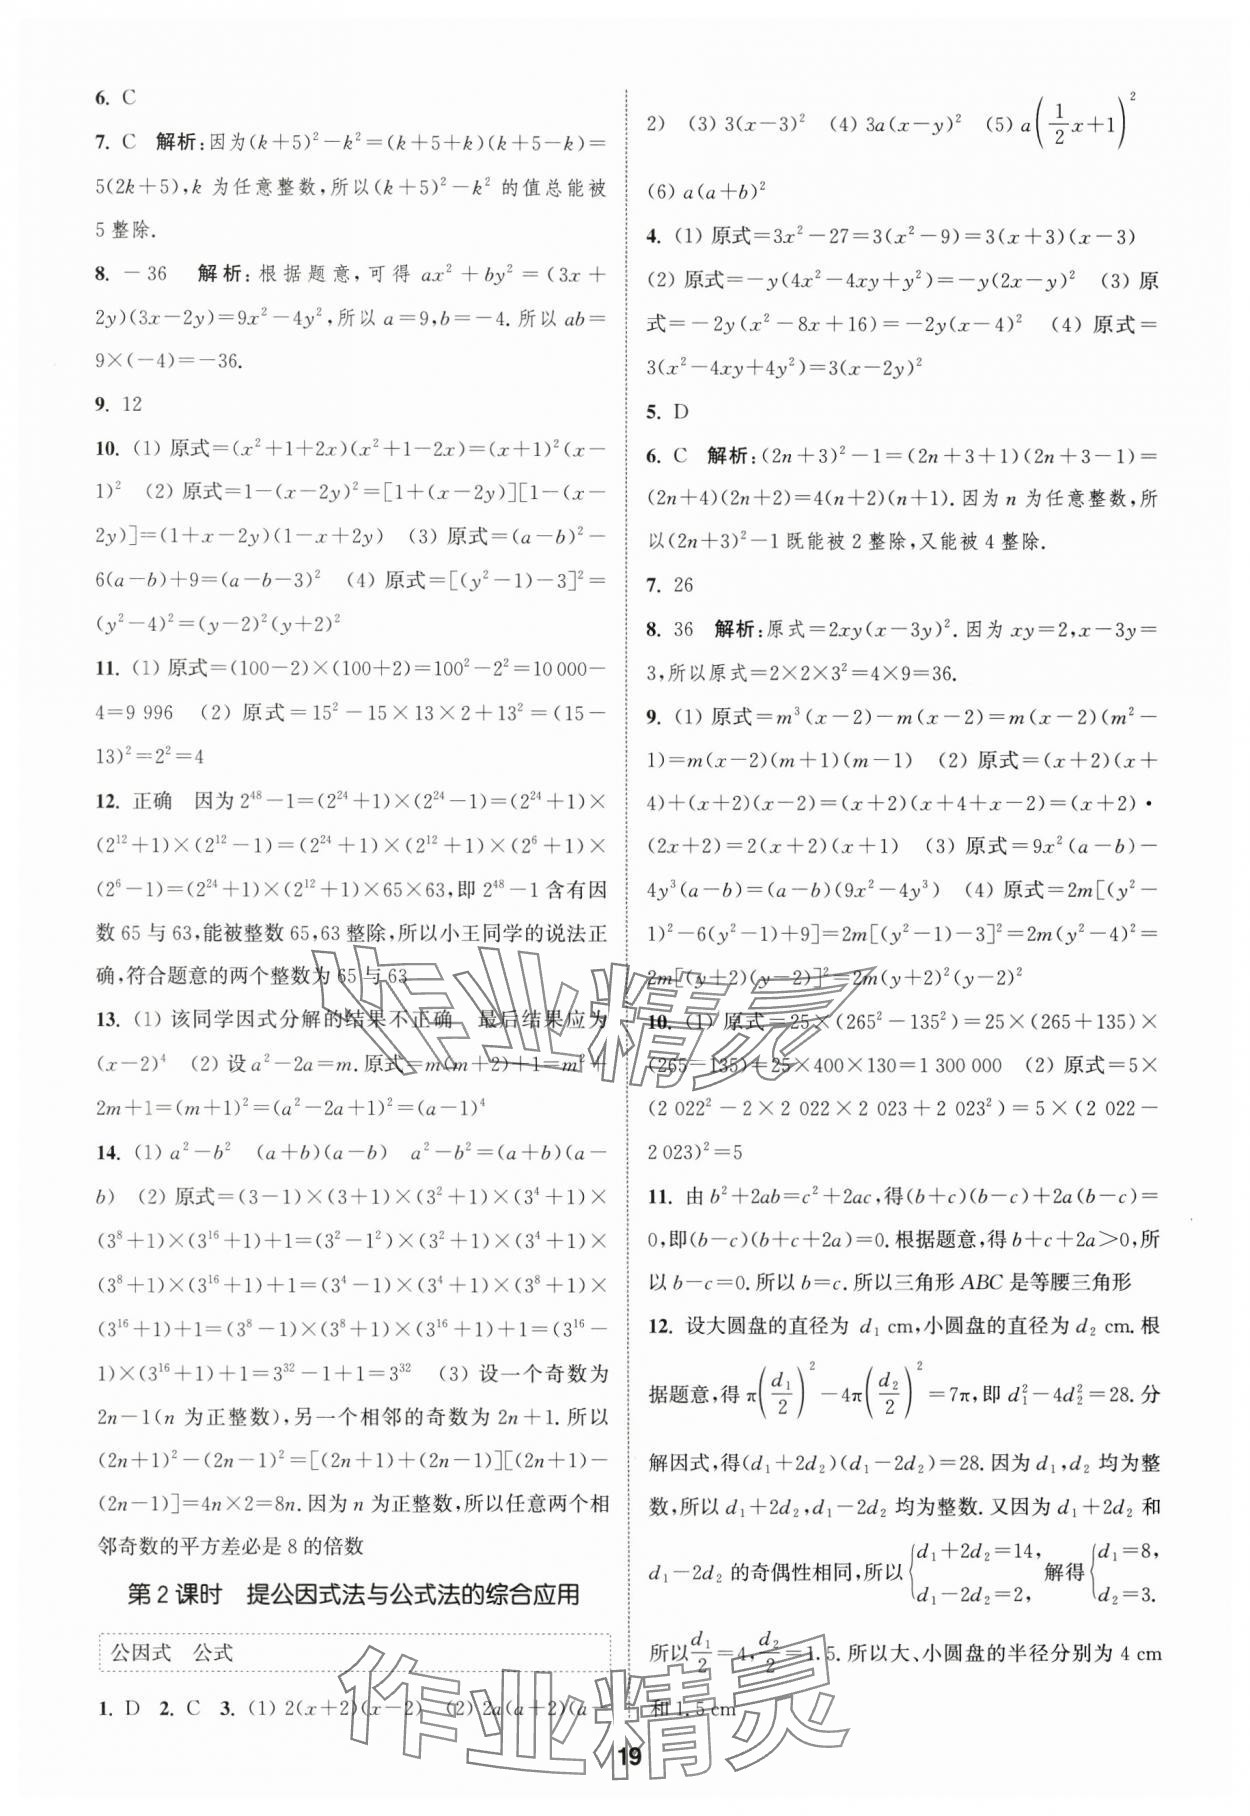 6. C
7. C 解析:因为(k+5)²-k²=(k+5+k)(k+5-k)=
5(2k+5),k 为任意整数,所以(k+5)²-k² 的值总能被
5 整除.
8. -36 解析:根据题意,可得 ax²+by²=(3x+
2y)(3x-2y)=9x²-4y²,所以 a=9,b=-4. 所以 ab=
9×(-4)=-36.
9. 12
10. (1) 原式=(x²+1+2x)(x²+1-2x)=(x+1)²(x-
1)² (2) 原式=1-(x-2y)²=[1+(x-2y)][1-(x-
2y)]=(1+x-2y)(1-x+2y) (3) 原式=(a-b)²-
6(a-b)+9=(a-b-3)² (4) 原式=[(y²-1)-3]²=
(y²-4)²=(y-2)²(y+2)²
11. (1) 原式=(100-2)×(100+2)=100²-2²=10 000-
4=9 996 (2) 原式=15²-15×13×2+13²=(15-
13)²=2²=4
12. 正确 因为 2⁴⁸-1=(2²⁴+1)×(2²⁴-1)=(2²⁴+1)×
(2¹²+1)×(2¹²-1)=(2²⁴+1)×(2¹²+1)×(2⁶+1)×
(2⁶-1)=(2²⁴+1)×(2¹²+1)×65×63,即 2⁴⁸-1 含有因
数 65 与 63,能被整数 65,63 整除,所以小王同学的说法正
确,符合题意的两个整数为 65 与 63
13. (1) 该同学因式分解的结果不正确 最后结果应为
(x-2)⁴ (2) 设 a²-2a=m. 原式=m(m+2)+1=m²+
2m+1=(m+1)²=(a²-2a+1)²=(a-1)⁴
14. (1) a²-b² (a+b)(a-b) a²-b²=(a+b)(a-
b) (2) 原式=(3-1)×(3+1)×(3²+1)×(3⁴+1)×
(3⁸+1)×(3¹⁶+1)+1=(3²-1²)×(3²+1)×(3⁴+1)×
(3⁸+1)×(3¹⁶+1)+1=(3⁴-1)×(3⁴+1)×(3⁸+1)×
(3¹⁶+1)+1=(3⁸-1)×(3⁸+1)×(3¹⁶+1)+1=(3¹⁶-
1)×(3¹⁶+1)+1=3³²-1+1=3³² (3) 设一个奇数为
2n-1(n 为正整数),另一个相邻的奇数为 2n+1. 所以
(2n+1)²-(2n-1)²=[(2n+1)+(2n-1)][(2n+1)-
(2n-1)]=4n×2=8n. 因为 n 为正整数,所以任意两个相
邻奇数的平方差必是 8 的倍数
第 2 课时 提公因式法与公式法的综合应用
公因式 公式
1. D 2. C 3. (1) 2(x+2)(x-2) (2) 2a(a+2)(a-
2) (3) 3(x-3)² (4) 3a(x-y)² (5) a(1/2x+1)²
(6) a(a+b)²
4. (1) 原式=3x²-27=3(x²-9)=3(x+3)(x-3)
(2) 原式=-y(4x²-4xy+y²)=-y(2x-y)² (3) 原
式=-2y(x²-8x+16)=-2y(x-4)² (4) 原式=
3(x²-4xy+4y²)=3(x-2y)²
5. D
6. C 解析:(2n+3)²-1=(2n+3+1)(2n+3-1)=
(2n+4)(2n+2)=4(n+2)(n+1). 因为 n 为任意整数,所
以(2n+3)²-1 既能被 2 整除,又能被 4 整除.
7. 26
8. 36 解析:原式=2xy(x-3y)². 因为 xy=2,x-3y=
3,所以原式=2×2×3²=4×9=36.
9. (1) 原式=m³(x-2)-m(x-2)=m(x-2)(m²-
1)=m(x-2)(m+1)(m-1) (2) 原式=(x+2)(x+
4)+(x+2)(x-2)=(x+2)(x+4+x-2)=(x+2)·
(2x+2)=2(x+2)(x+1) (3) 原式=9x²(a-b)-
4y³(a-b)=(a-b)(9x²-4y³) (4) 原式=2m[(y²-
1)²-6(y²-1)+9]=2m[(y²-1)-3]²=2m(y²-4)²=
2m[(y+2)(y-2)]²=2m(y+2)²(y-2)²
10. (1) 原式=25×(265²-135²)=25×(265+135)×
(265-135)=25×400×130=1 300 000 (2) 原式=5×
(2 022²-2×2 022×2 023+2 023²)=5×(2 022-
2 023)²=5
11. 由 b²+2ab=c²+2ac,得(b+c)(b-c)+2a(b-c)=
0,即(b-c)(b+c+2a)=0. 根据题意,得 b+c+2a>0,所
以 b-c=0. 所以 b=c. 所以三角形 ABC 是等腰三角形
12. 设大圆盘的直径为 d₁ cm,小圆盘的直径为 d₂ cm. 根
据题意,得 π(d₁/2)²-4π(d₂/2)²=7π,即 d₁²-4d₂²=28. 分
解因式,得(d₁+2d₂)(d₁-2d₂)=28. 因为 d₁,d₂ 均为整
数,所以 d₁+2d₂,d₁-2d₂ 均为整数. 又因为 d₁+2d₂ 和
d₁-2d₂ 的奇偶性相同,所以{d₁+2d₂=14, d₁-2d₂=2. 解得{d₁=8, d₂=3.
所以 d₁/2=4, d₂/2=1.5. 所以大、小圆盘的半径分别为 4 cm
和 1.5 cm
作业精灵
作业精灵
19